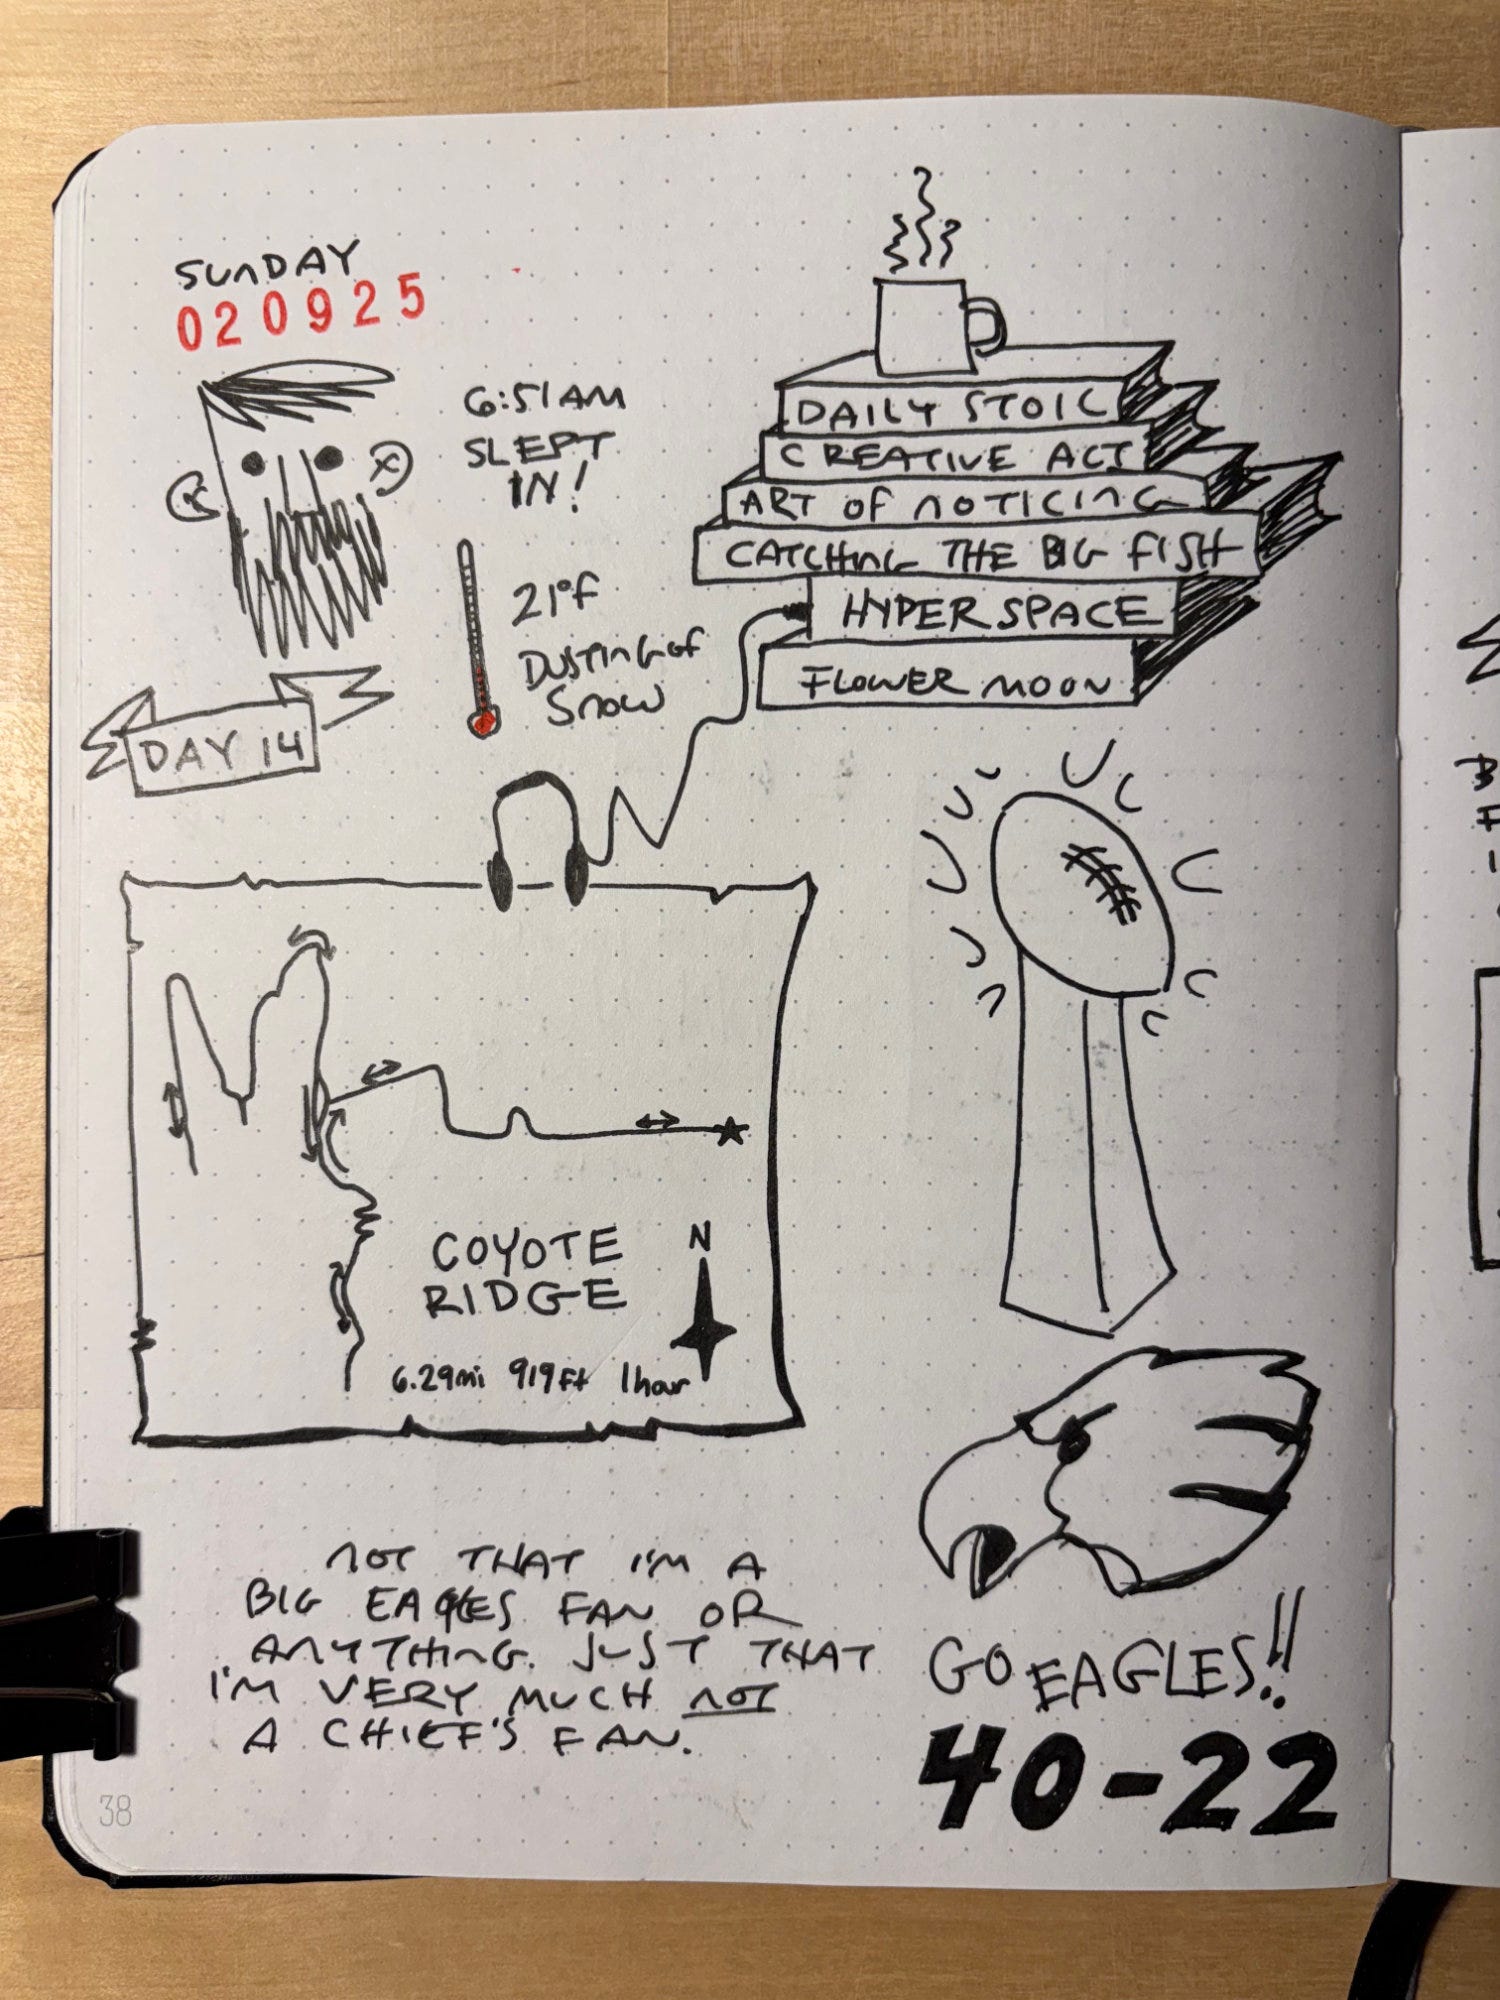 SUNDAY
020925
6:51AM
SLEPT
IN!
21°F
DUSTING OF
SNOW
DAY 14
DAILY STOIC
CREATIVE ACT
ART OF NOTICING
CATCHING THE BIG FISH
HYPERSPACE
FLOWER MOON
COYOTE
RIDGE
N
6.29mi 919Ft 1hour
NOT THAT I'M A
BIG EAGLES FAN OR
ANYTHING. JUST THAT
I'M VERY MUCH NOT
A CHIEF'S FAN.
GO EAGLES!!
40-22
38